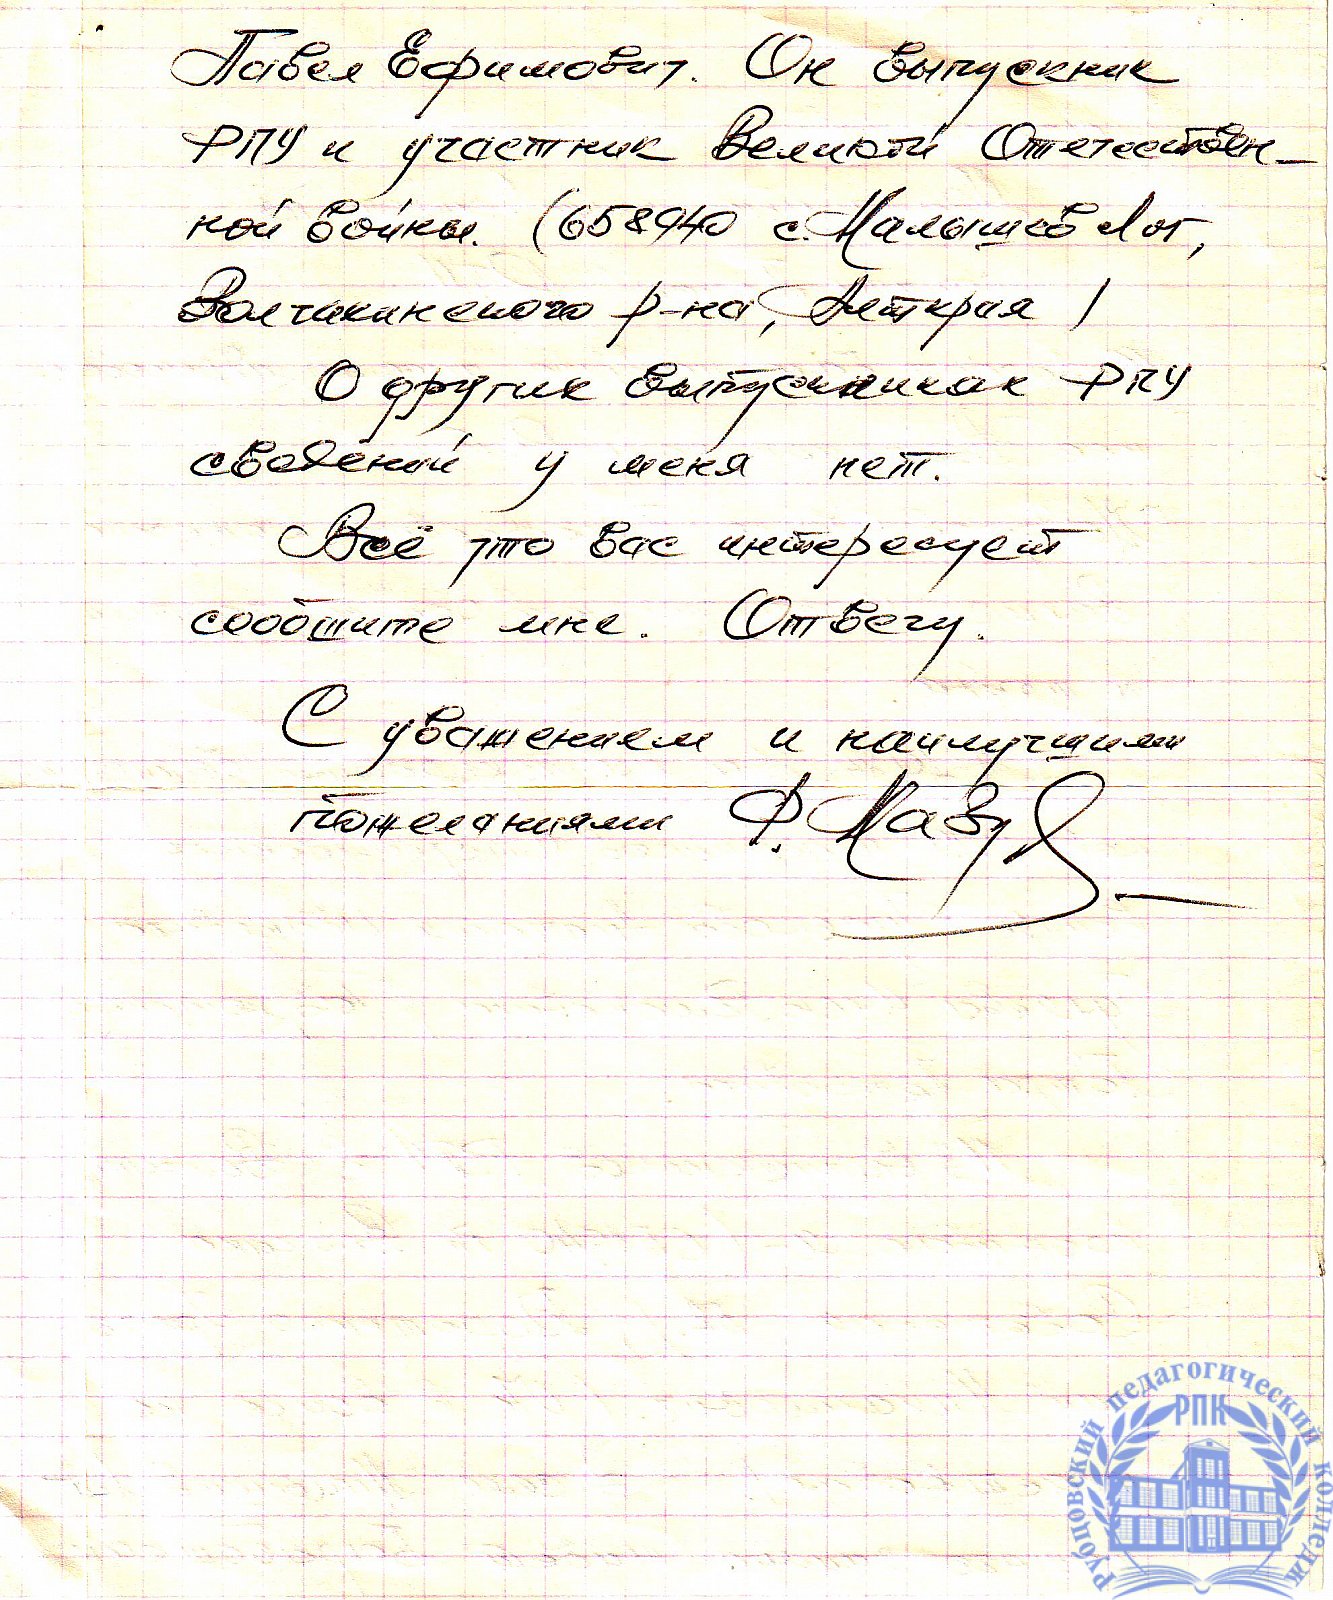 Павел Ефимович. Он выпускник
РПУ и участник Великой Отечествен-
ной войны. (658940 с. Малышев Лог,
Волчихинского р-на, Алт края)
О других выпускниках РПУ
сведений у меня нет.
Всё что вас интересует
сообщите мне. Отвечу.
С уважением и наилучшими
пожеланиями Ф.
Рубцовский педагогический колледж
РПК